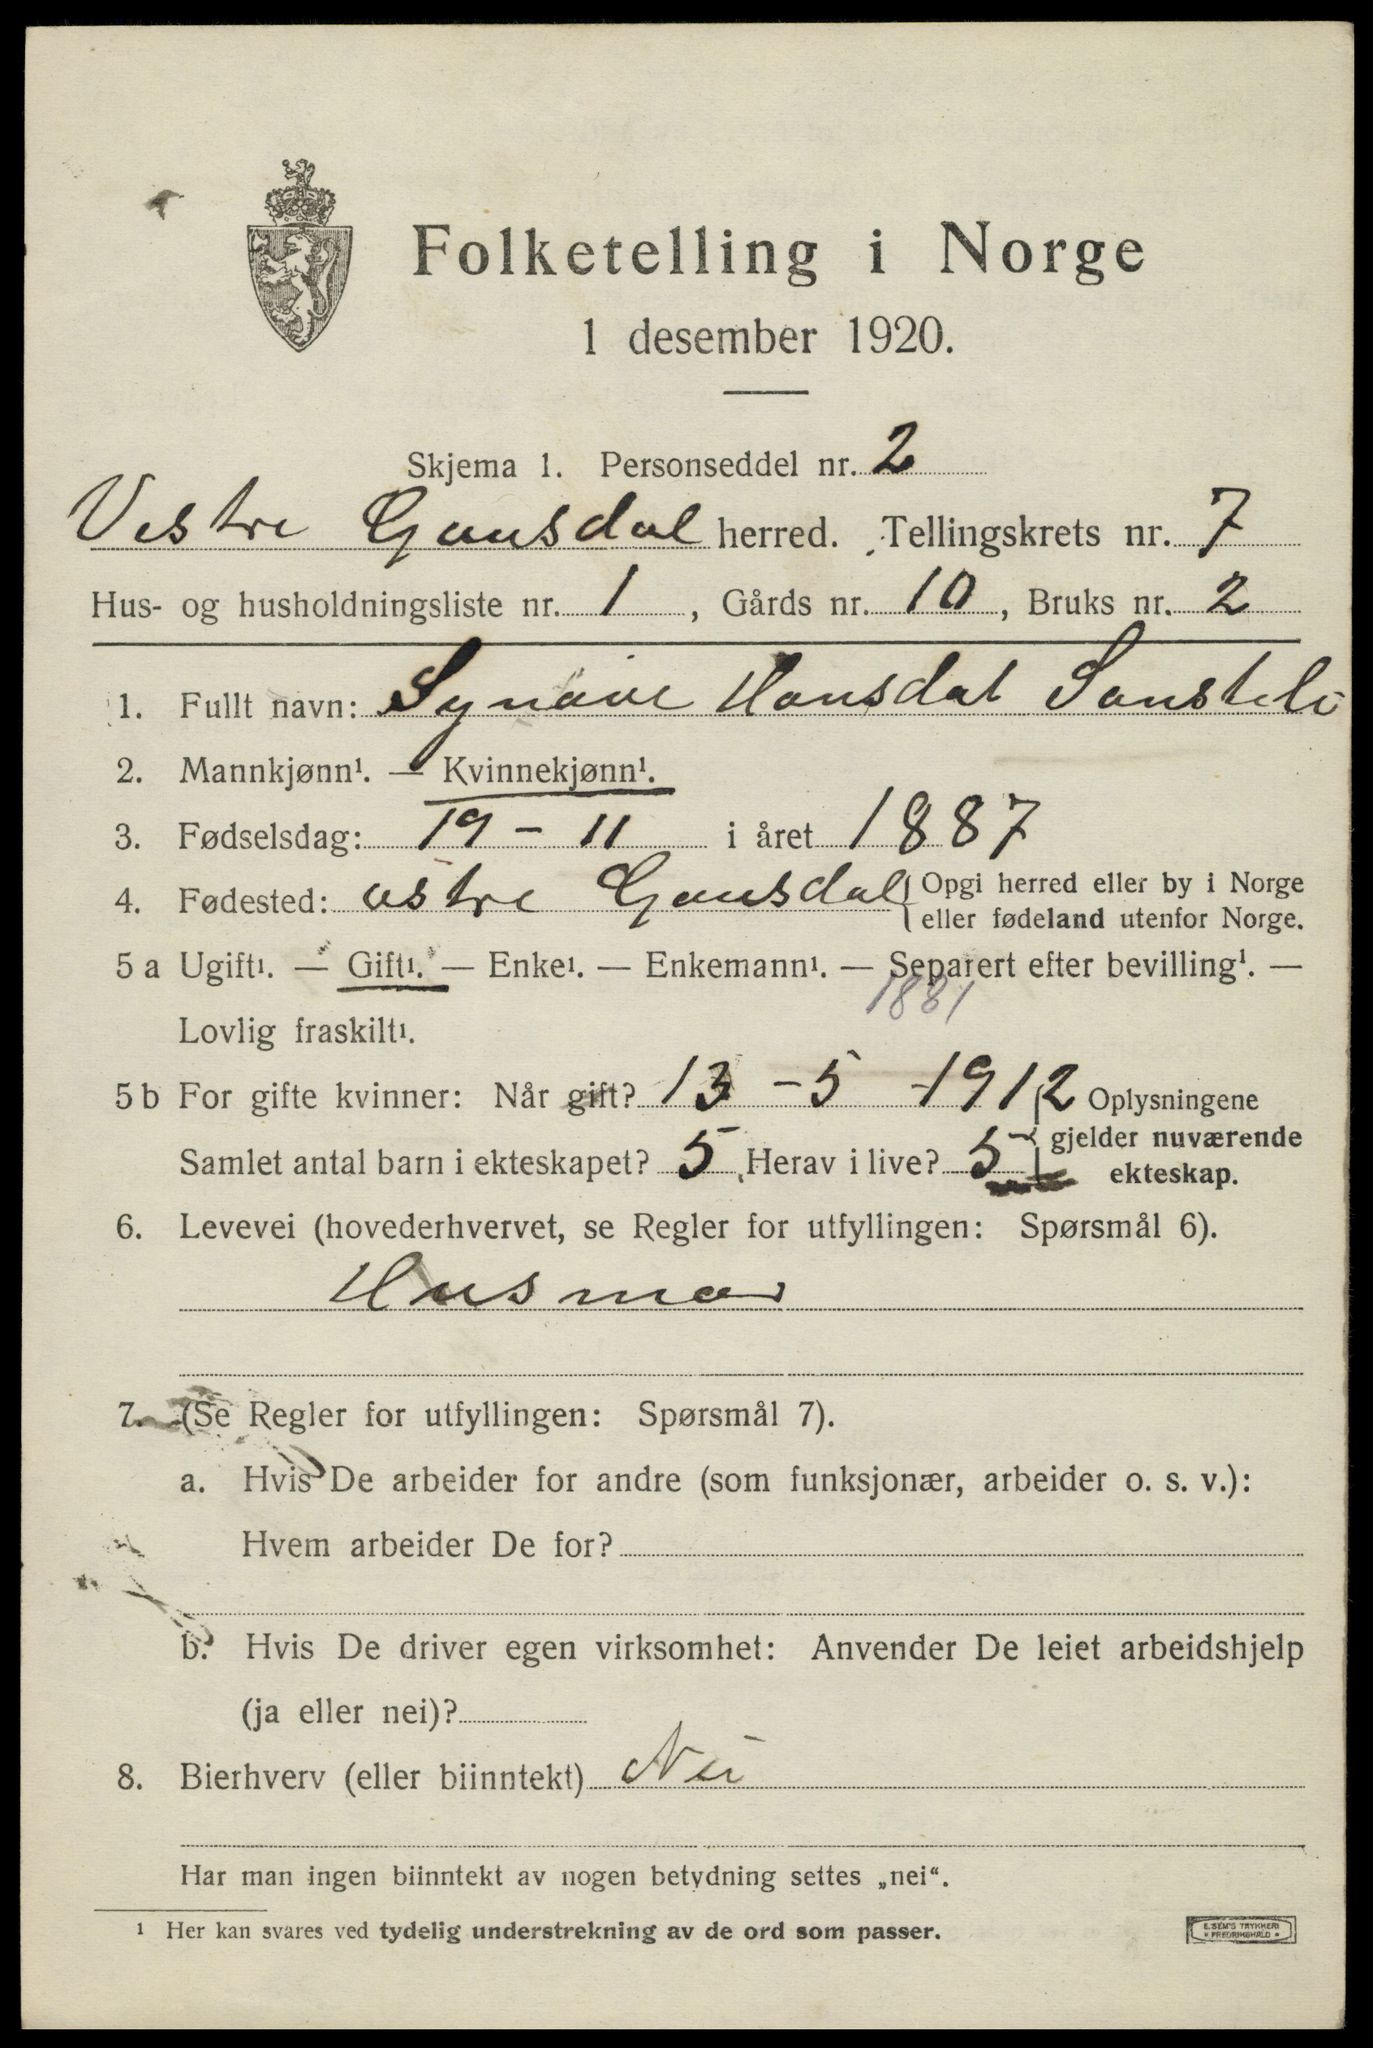 Folketelling i Norge
1 desember 1920.
Skjema 1. Personseddel nr. 2
Vestre Gausdal herred. Tellingskrets nr. 7
Hus- og husholdningsliste nr. 1, Gårds nr. 10, Bruks nr. 2
1. Fullt navn: Synøve Hansdat
2. Mannkjønn¹. — Kvinnekjønn¹.
3. Fødselsdag: 19 - 11 i året 1887
4. Fødested: østre Gausdal { Opgi herred eller by i Norge
eller fødeland utenfor Norge.
5 a Ugift¹. — Gift¹. — Enke¹. — Enkemann¹. — Separert efter bevilling¹. —
1881
Lovlig fraskilt¹.
5 b For gifte kvinner: Når gift? 13 - 5 - 1912 Oplysningene
Samlet antal barn i ekteskapet? 5 Herav i live? 5 } gjelder nuværende
ekteskap.
6. Levevei (hovederhvervet, se Regler for utfyllingen: Spørsmål 6).
Husmor
7. (Se Regler for utfyllingen: Spørsmål 7).
a. Hvis De arbeider for andre (som funksjonær, arbeider o. s. v.):
Hvem arbeider De for?
b. Hvis De driver egen virksomhet: Anvender De leiet arbeidshjelp
(ja eller nei)?
8. Bierhverv (eller biinntekt) Nei
Har man ingen biinntekt av nogen betydning settes „nei“.
¹ Her kan svares ved tydelig understrekning av de ord som passer.
E. SEM'S TRYKKERI
* FREDRIKSHALD *